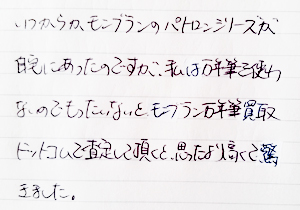 いつからか、モンブランのパトロンシリーズが
自宅にあったのですが、私は万年筆を使わ
ないのでもったいないと、モンブラン万年筆買取
ドットコムで査定して頂くと、思ったより高くて驚
きました。